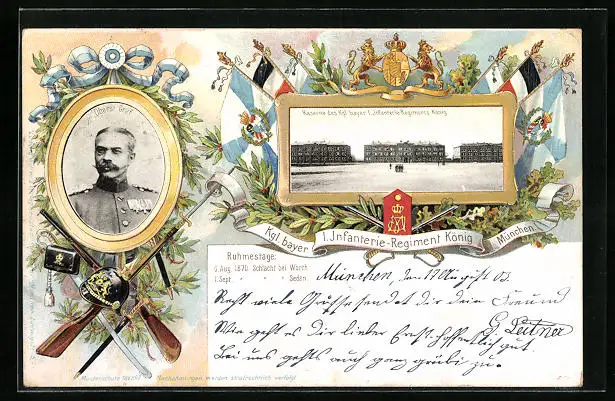 Oberst Graf
Kaserne des Kgl. bayer. 1. Infanterie-Regiments König
Kgl. bayer. 1. Infanterie-Regiment König München.
Ruhmestage:
6. Aug. 1870 Schlacht bei Wörth
1. Sept. " " " Sedan
München, den 17 August 03.
Recht viele Grüsse sendet dir dein Freund
G. Leitner
Wie geht es dir lieber Ernst. hoffentlich gut.
Bei uns gehts auch ganz zu.
Musterschutz Nachahmungen werden strafrechtlich verfolgt